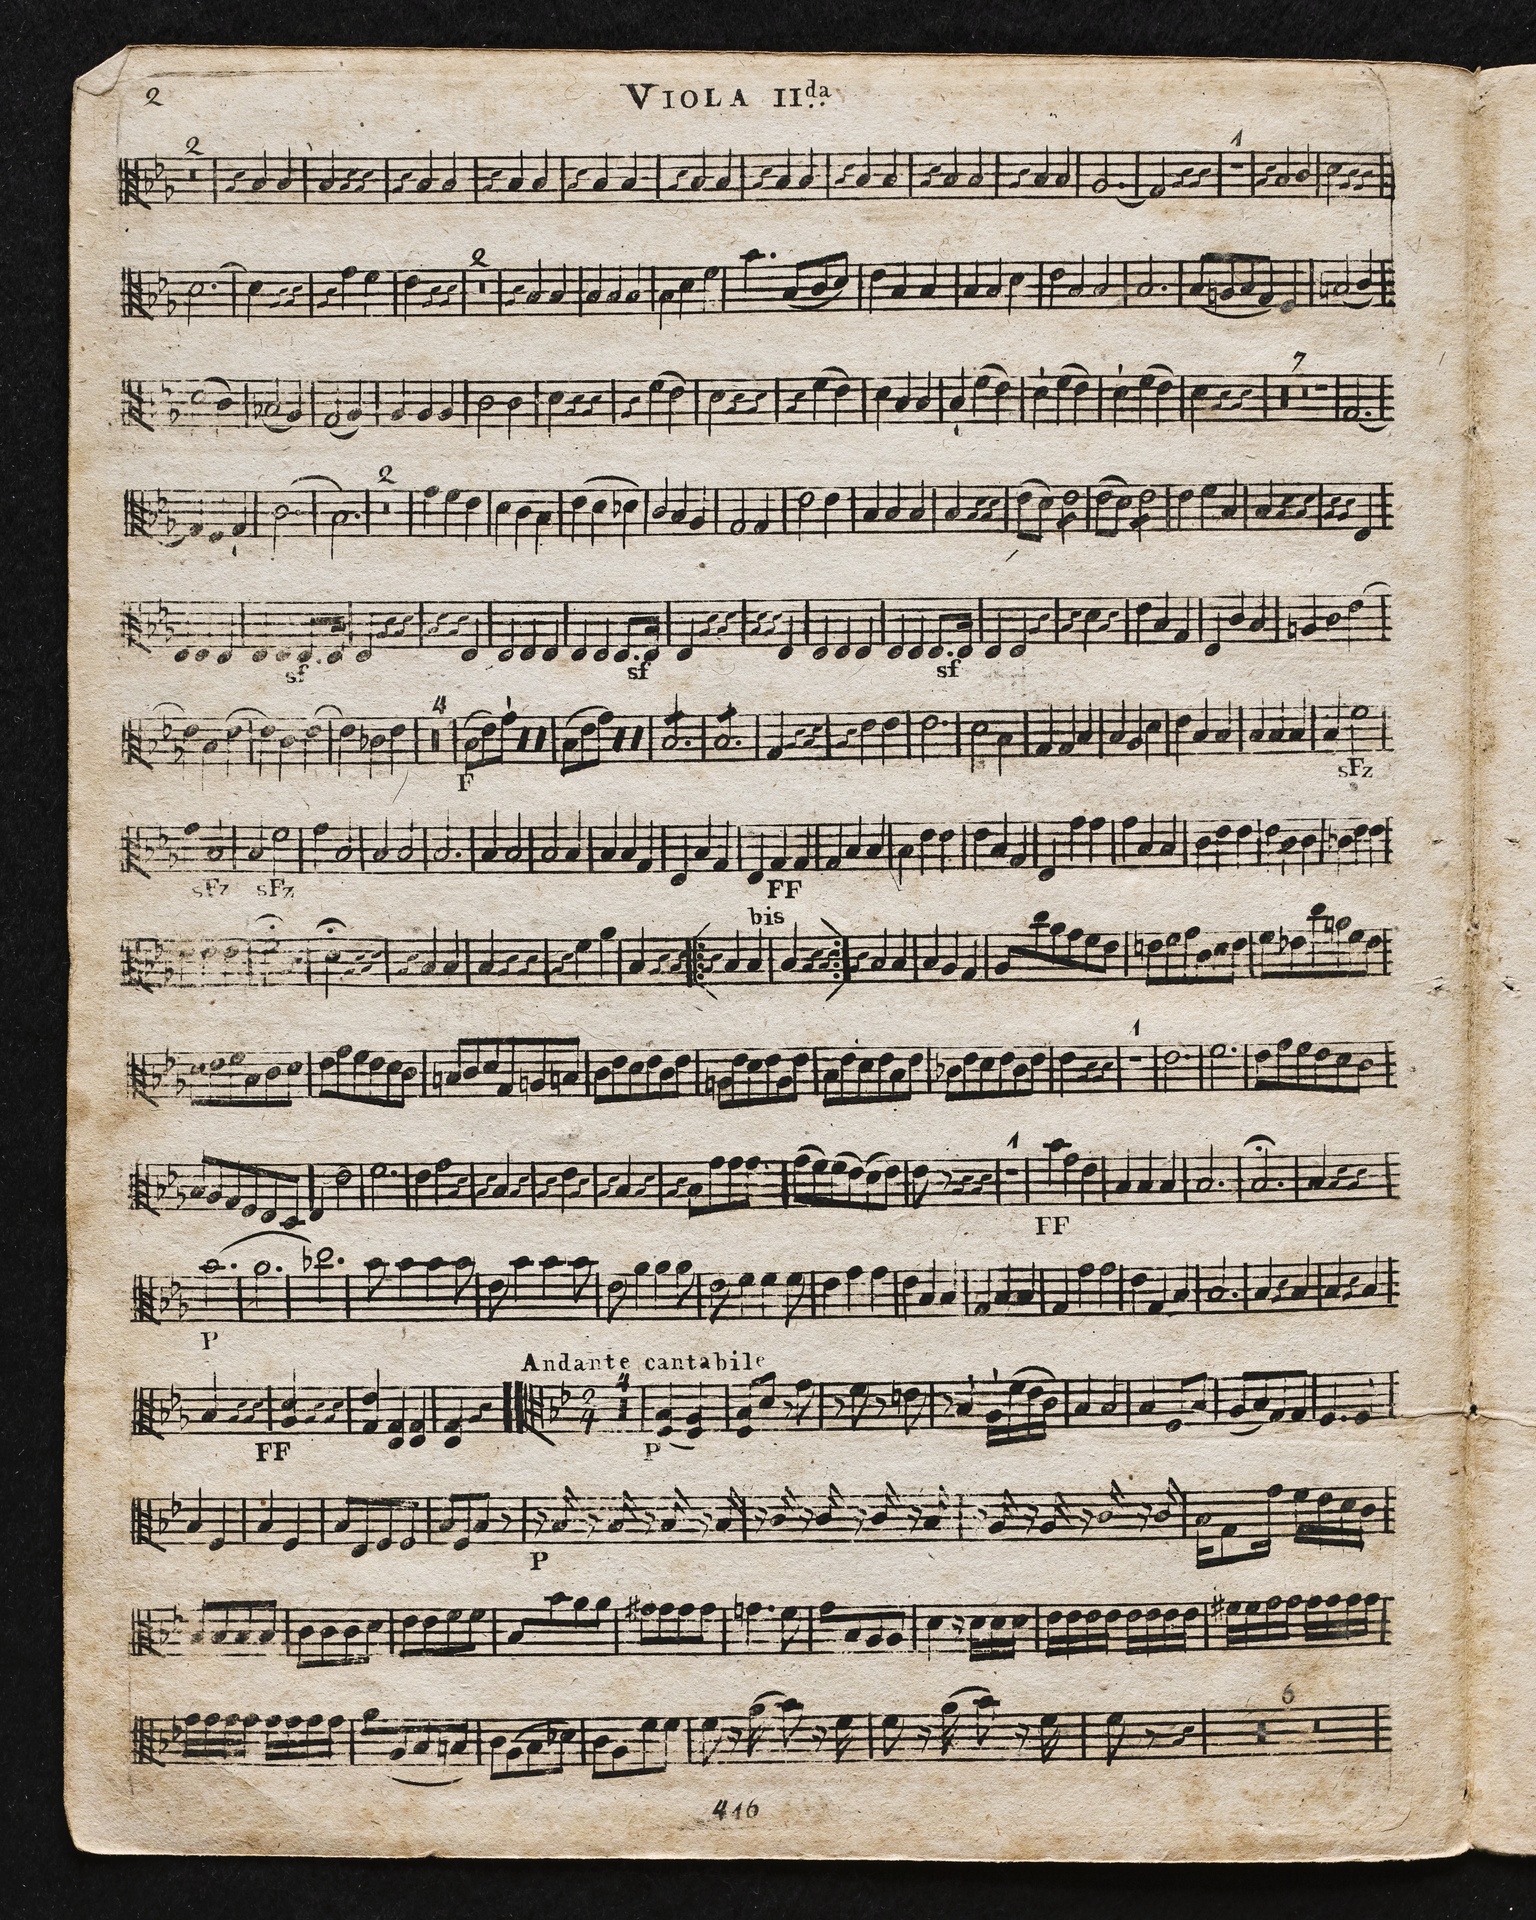 2
VIOLA IIda
2
1
2
7
2
sf sf sf
4
F sFz
sFz sFz FF
bis
1
1
FF
P
Andante cantabile
2 4
4
FF P
P
6
416